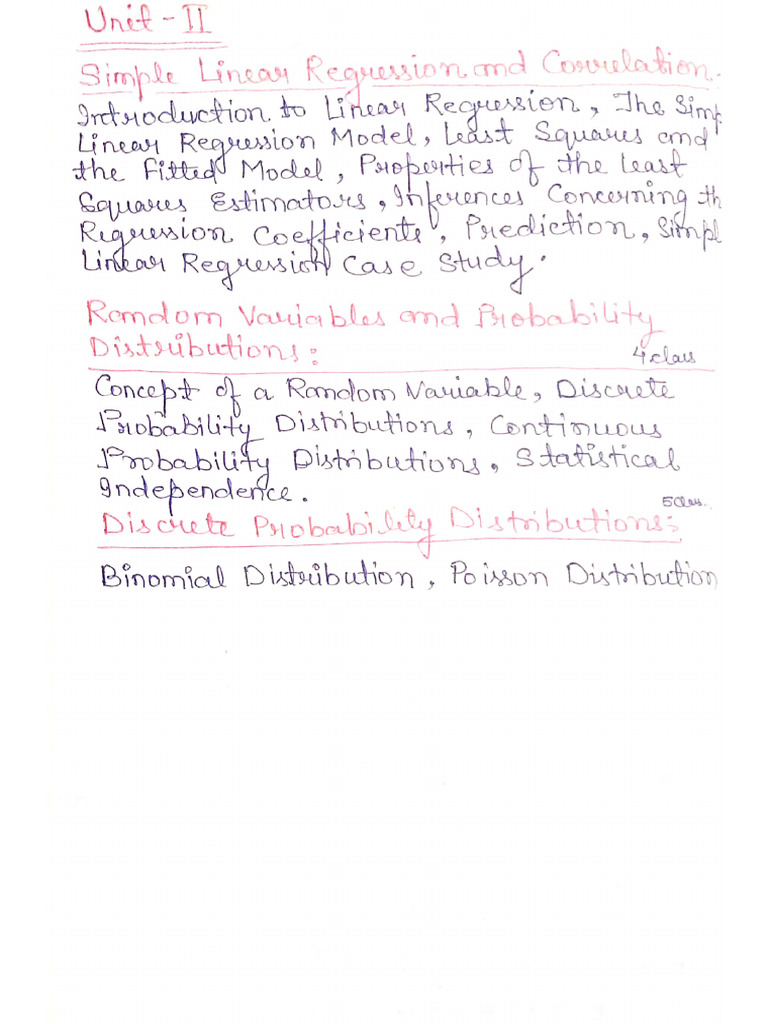 Unit - II
Simple Linear Regression and Correlation.
Introduction to Linear Regression, The Simp
Linear Regression Model, Least Squares and
the Fitted Model, Properties of the Least
Squares Estimators, Inferences Concerning th
Regression Coefficients, Prediction, Simpl
Linear Regression Case Study.
Random Variables and Probability
Distributions:
4 class
Concept of a Random Variable, Discrete
Probability Distributions, Continuous
Probability Distributions, Statistical
Independence.
5 Clas.
Discrete Probability Distributions:
Binomial Distribution, Poisson Distribution